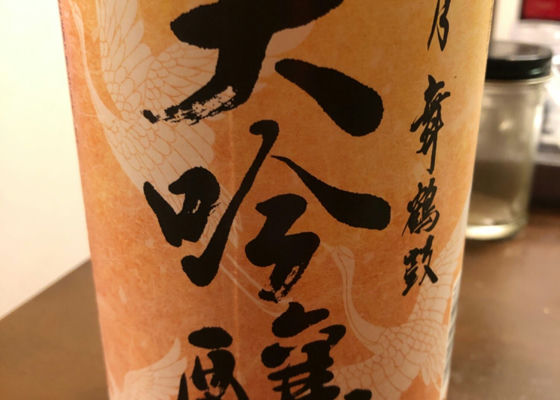 月 舞鶴鼓
大吟醸